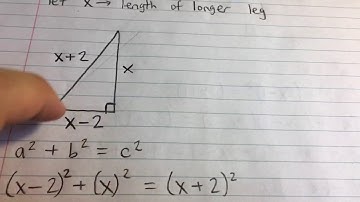 let x → length of longer leg
x+2
x
x−2
a² + b² = c²
(x−2)² + (x)² = (x+2)²